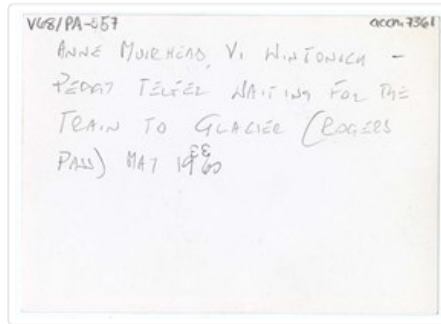 V68/PA-557 accn. 7361
ANNE MUIRHEAD, VI WINTONICK -
PEGGY TELFER WAITING FOR THE
TRAIN TO GLACIER (ROGERS
PASS) MAY 1960